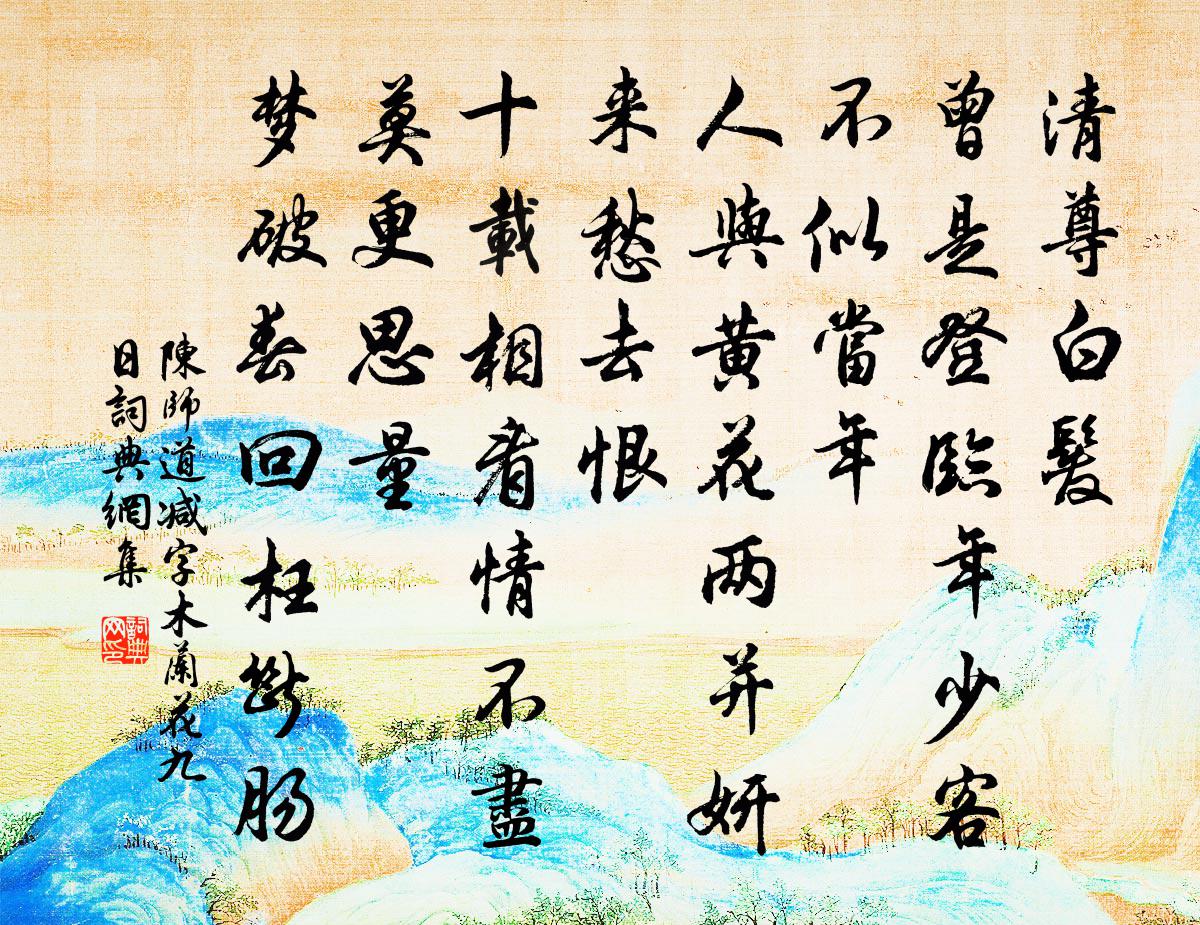 清尊白髮
曾是登臨年少客
不似當年
人與黃花两并妍
来愁去恨
十載相看情不盡
莫更思量
梦破春回枉斷肠
陳師道減字木蘭花九
日詞典網集
詞典
网印